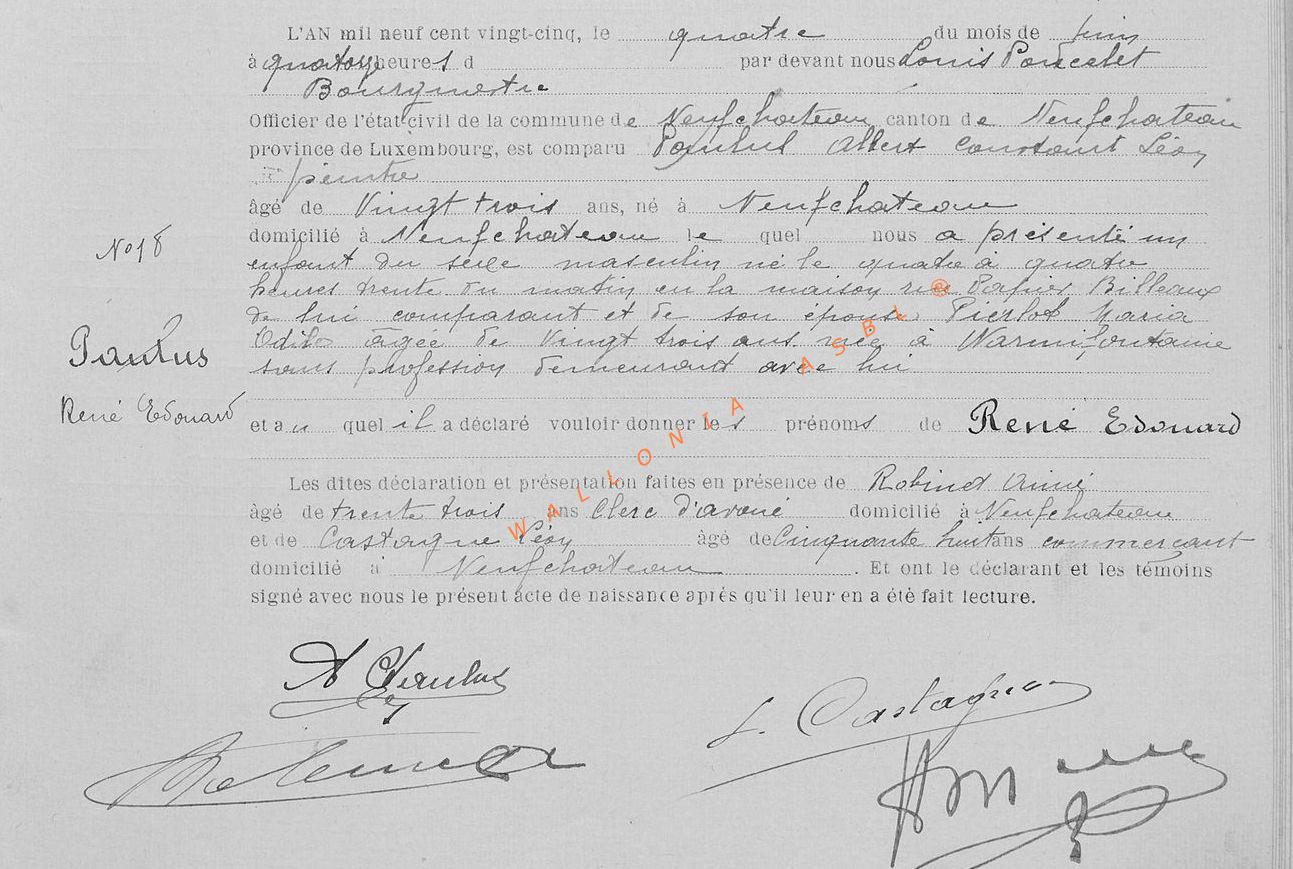 L'AN mil neuf cent vingt-cinq, le quatre du mois de juin
à quatorze heures d par devant nous Louis Poncelet
Bourgmestre
Officier de l'état civil de la commune de Neufchateau canton de Neufchateau
province de Luxembourg, est comparu Paulus Albert Constant Léon
peintre
âgé de Vingt trois ans, né à Neufchateau
domicilié à Neufchateau le quel nous a présenté un
No 18
enfant du sexe masculin né le quatre à quatre
heures trente du matin en la maison rue Billeaux
de lui comparant et de son épouse Pierlot Maria
Odile âgée de Vingt trois ans née à Warmifontaine
sans profession demeurant avec lui
Paulus
René Edouard
et au quel il a déclaré vouloir donner les prénoms de René Edouard
Les dites déclaration et présentation faites en présence de Robinet Aimé
âgé de trente trois ans Clerc d'avoué domicilié à Neufchateau
et de Castaigne Léon âgé de Cinquante huit ans commerçant
domicilié à Neufchateau. Et ont le déclarant et les témoins
signé avec nous le présent acte de naissance après qu'il leur en a été fait lecture.
WALLONIA ASBL ®
A Paulus
L. Castagne